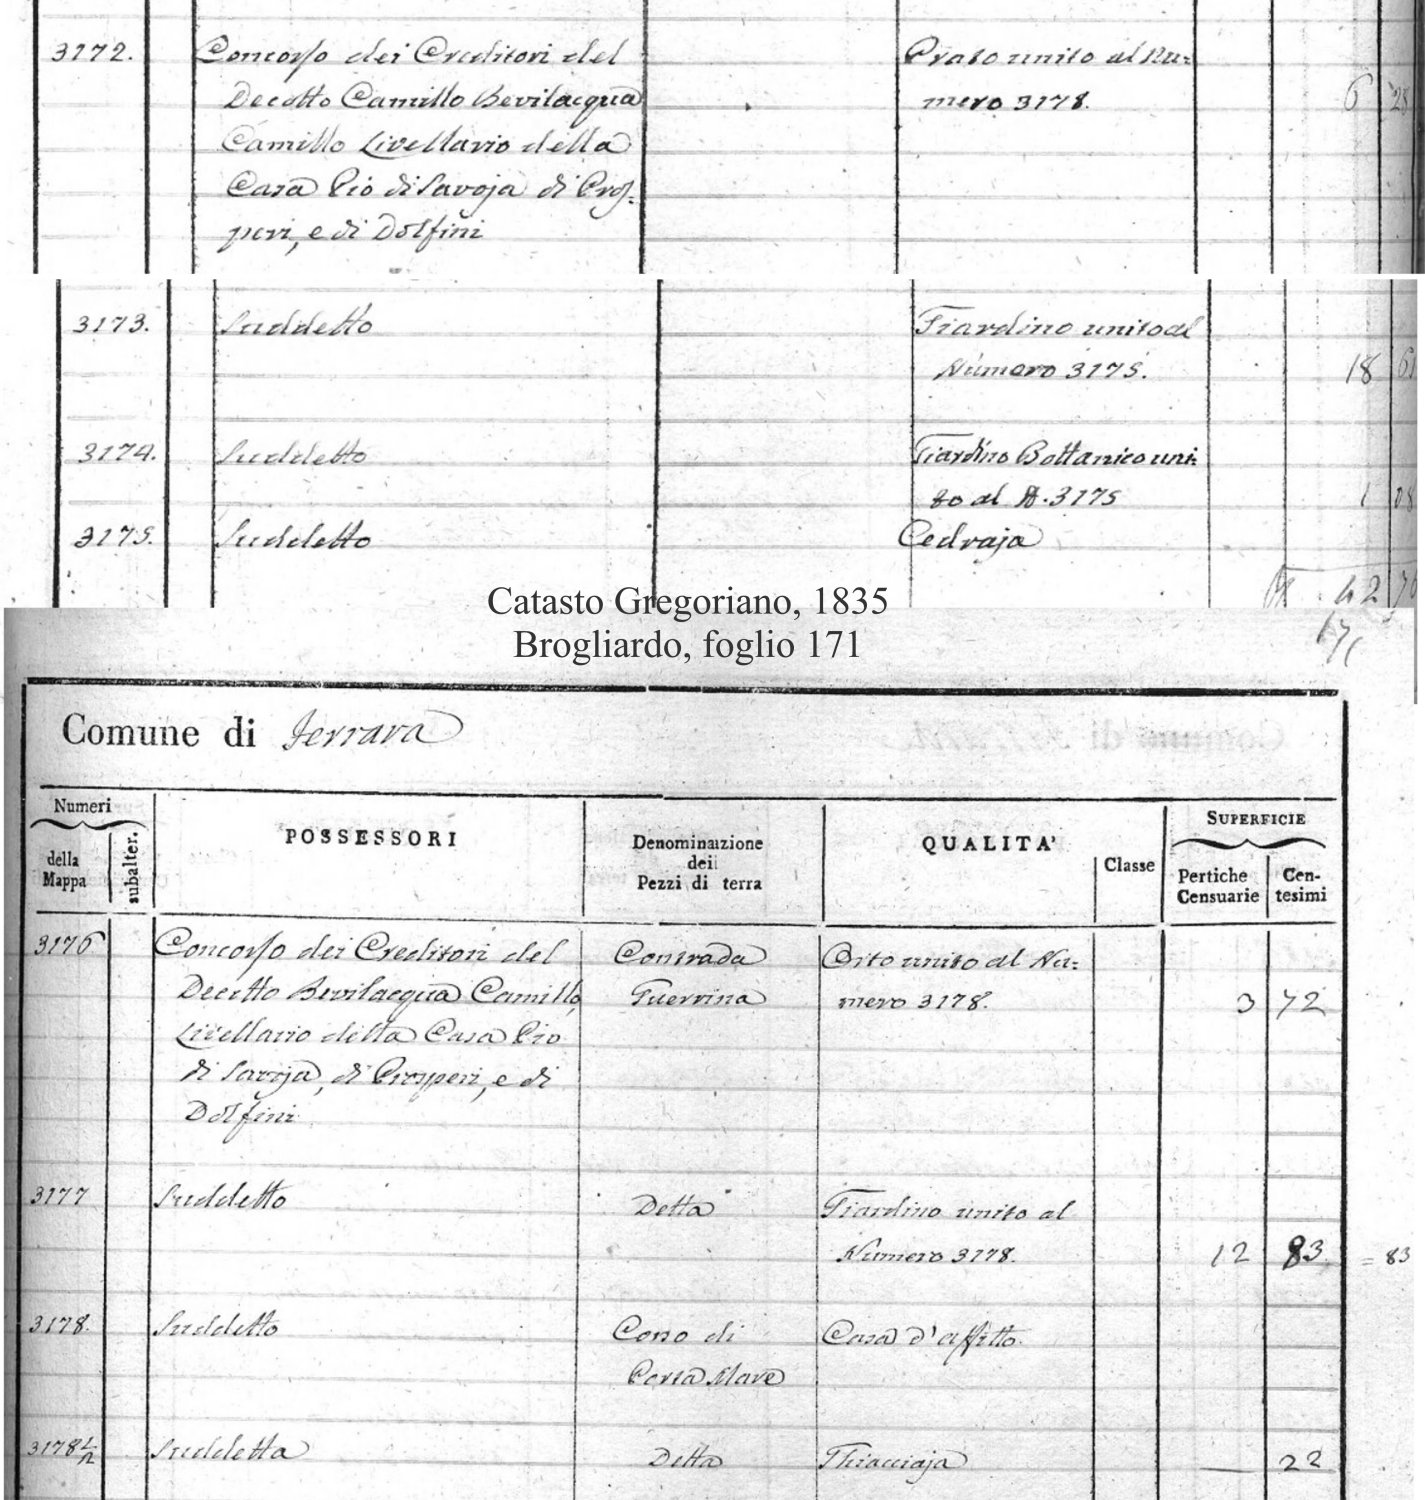 3172. Concorso dei Creditori del Prato unito al Nu:
Decotto Camillo Bevilacqua mero 3178. 6 28
Camillo Livellario della
Casa Pio di Savoja di Pros:
peri, e di Dolfini
3173. Suddetto Giardino unito al
Numero 3175. 18 61
3174. Suddetto Giardino Bottanico uni:
to al N. 3175 1 08
3175. Suddetto Cedraja
42
171
Catasto Gregoriano, 1835
Brogliardo, foglio 171
Comune di Ferrara
Numeri
della Mappa
subalter.
POSSESSORI
Denominazione
dei
Pezzi di terra
QUALITA'
Classe
SUPERFICIE
Pertiche Censuarie
Cen-
tesimi
3176 Concorso dei Creditori del Contrada Orto unito al Nu:
Decotto Bevilacqua Camillo, Guervina mero 3178. 3 72
Livellario della Casa Pio
di Savoja, di Prosperi, e di
Dolfini
3177 Suddetto Detta Giardino unito al
Numero 3178. 12 83 = 83
3178. Suddetto Corso di Casa d'affitto
Porta Mare
3178 1/2 Suddetta Detta Ghiacciaja — 22